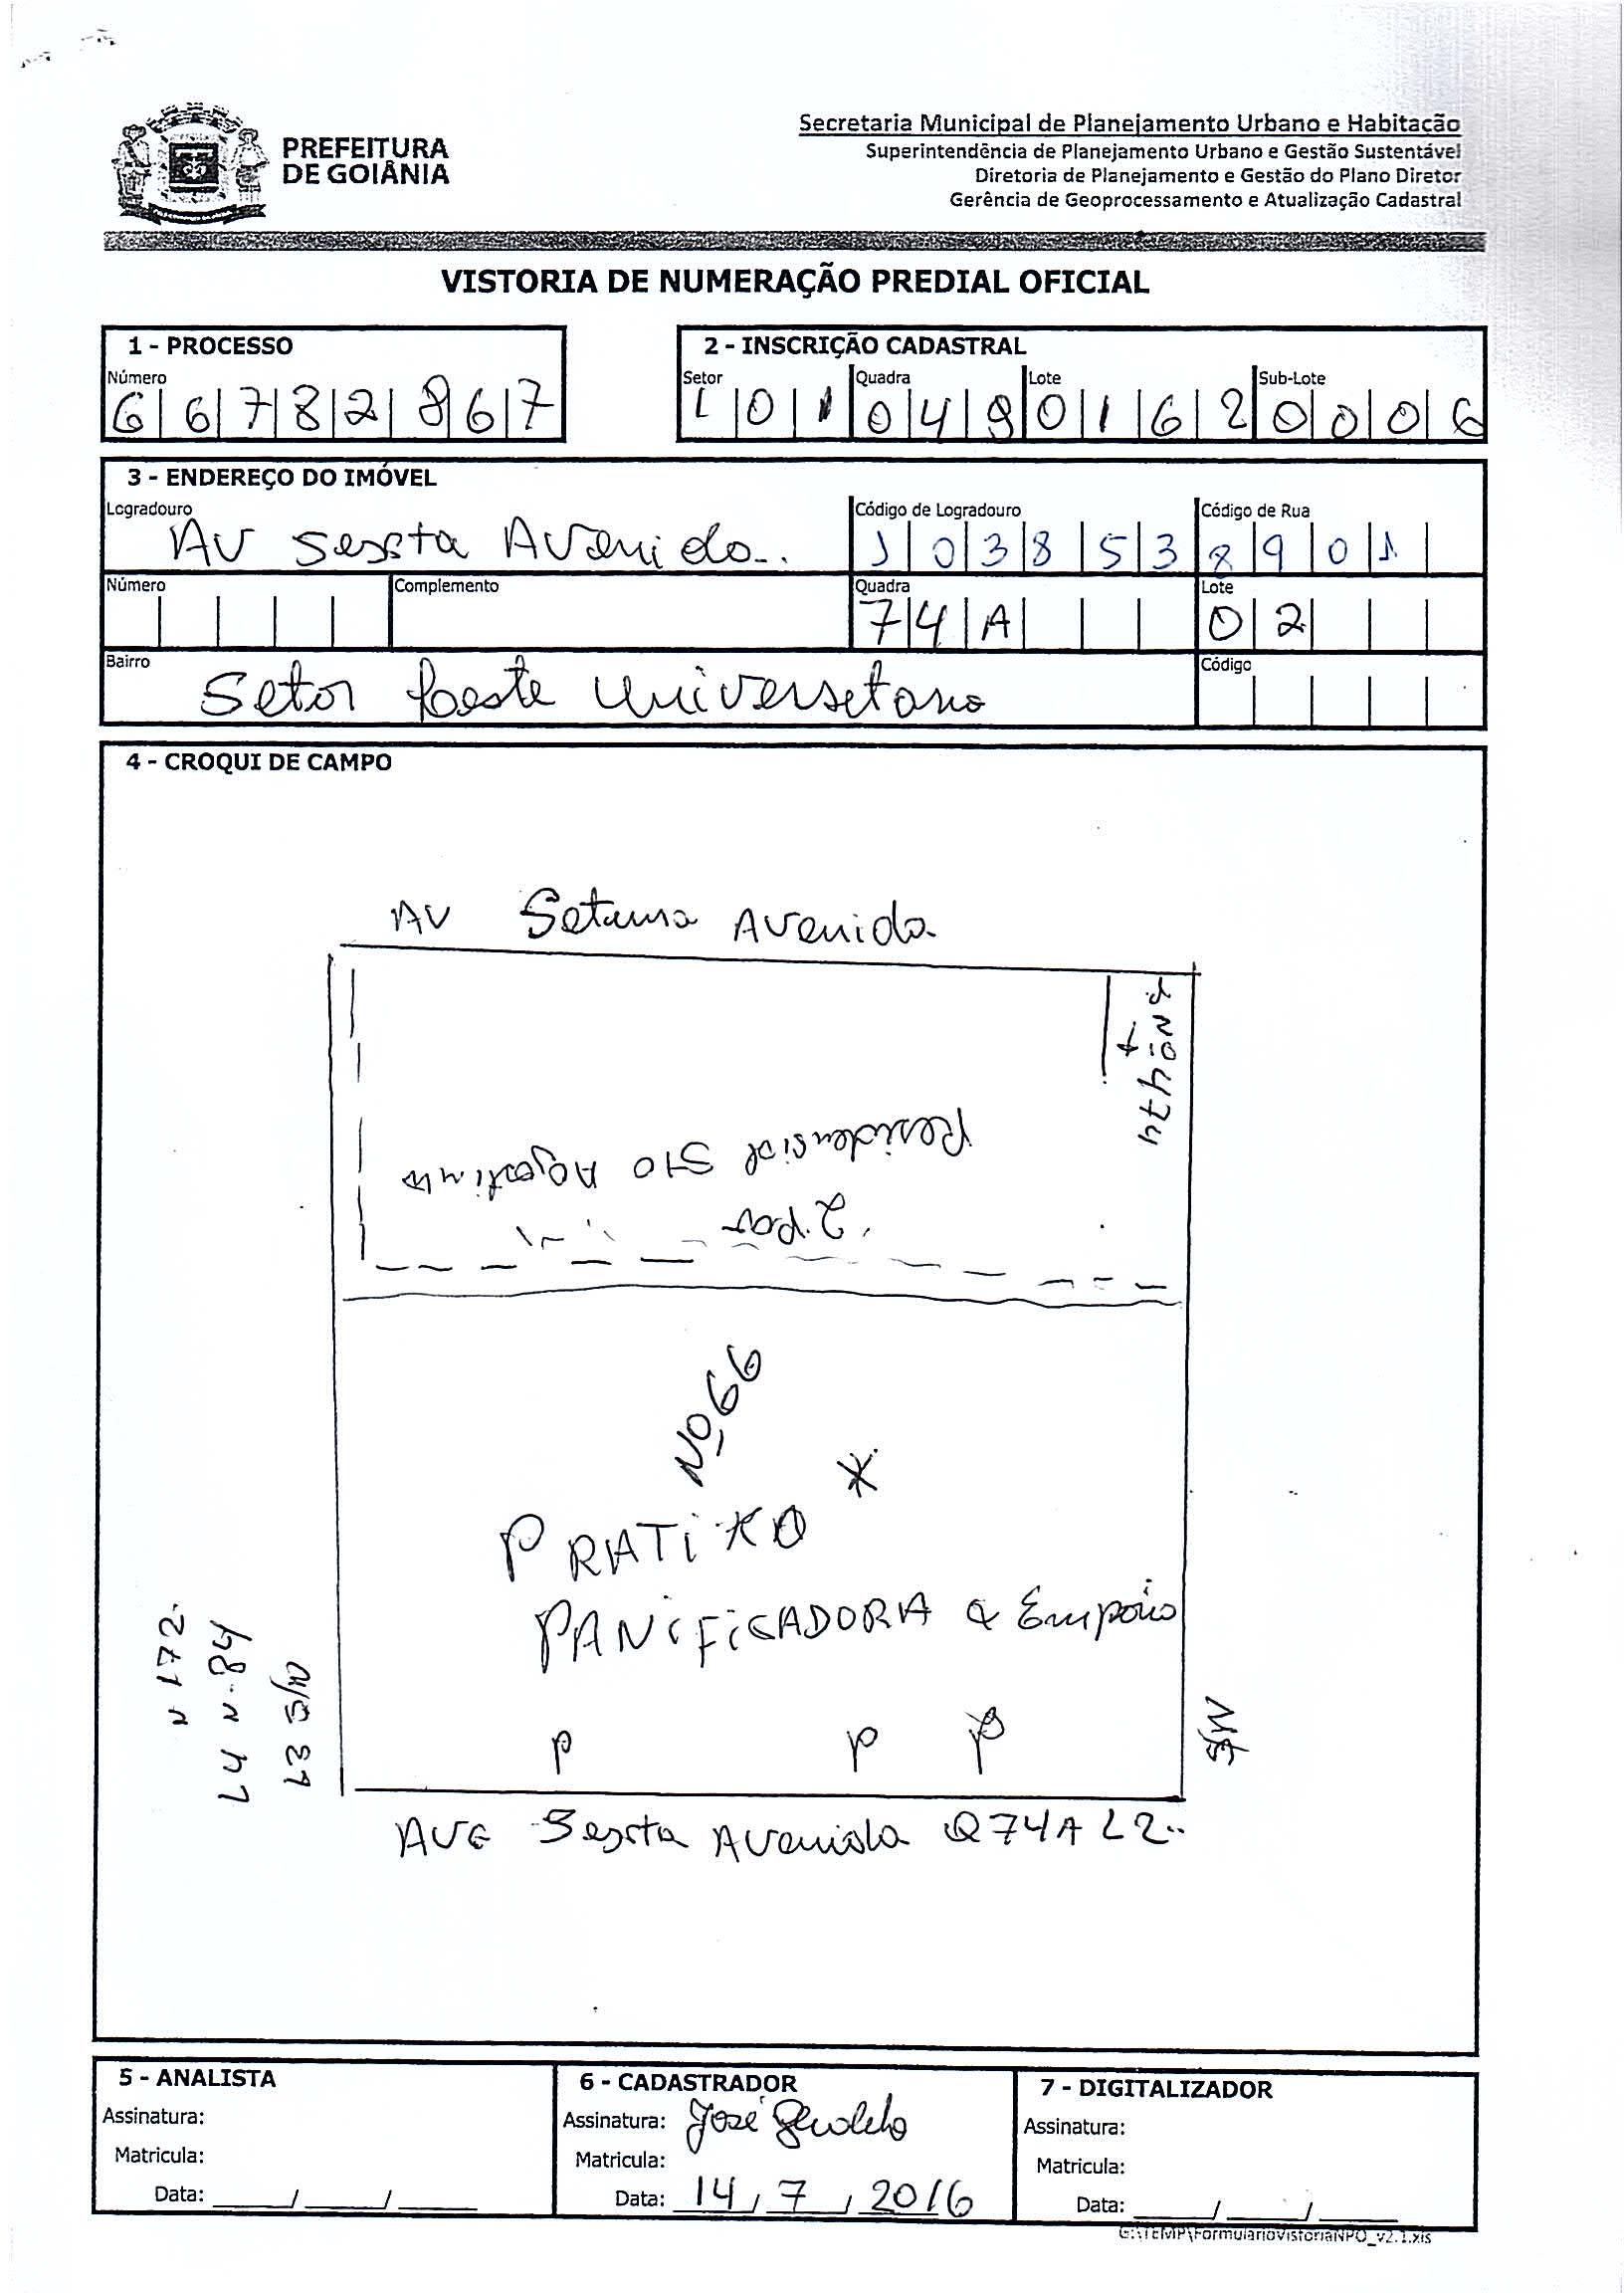 PREFEITURA
DE GOIÂNIA
Secretaria Municipal de Planejamento Urbano e Habitação
Superintendência de Planejamento Urbano e Gestão Sustentável
Diretoria de Planejamento e Gestão do Plano Diretor
Gerência de Geoprocessamento e Atualização Cadastral
VISTORIA DE NUMERAÇÃO PREDIAL OFICIAL
1 - PROCESSO
Número
6 6 7 8 2 8 6 7
2 - INSCRIÇÃO CADASTRAL
Setor Quadra Lote Sub-Lote
1 0 1 0 4 9 0 1 6 2 0 0 0 6
3 - ENDEREÇO DO IMÓVEL
Logradouro Código de Logradouro Código de Rua
AV Sexta Avenida.. 1 0 3 8 5 3 8 9 0 1
Número Complemento Quadra Lote
7 4 A 0 2
Bairro Código
Setor Leste Universetario
4 - CROQUI DE CAMPO
AV Setima Avenida
Nº 474
Residensial Sto Agostinho
2 Pav
Nº 66
PRATIKO *
PANiFiCADORIA & Emporio
N 172
L4 N-84
L3 S/N
S/N
P P P
AVE Sexta Avenida Q74A L2..
5 - ANALISTA
Assinatura:
Matricula:
Data: ____/____/____
6 - CADASTRADOR
Assinatura: José
Matricula:
Data: 14/7/2016
7 - DIGITALIZADOR
Assinatura:
Matricula:
Data: ____/____/____
G:\TEMP\FormularioVistoriaNPO_v2.1.xls